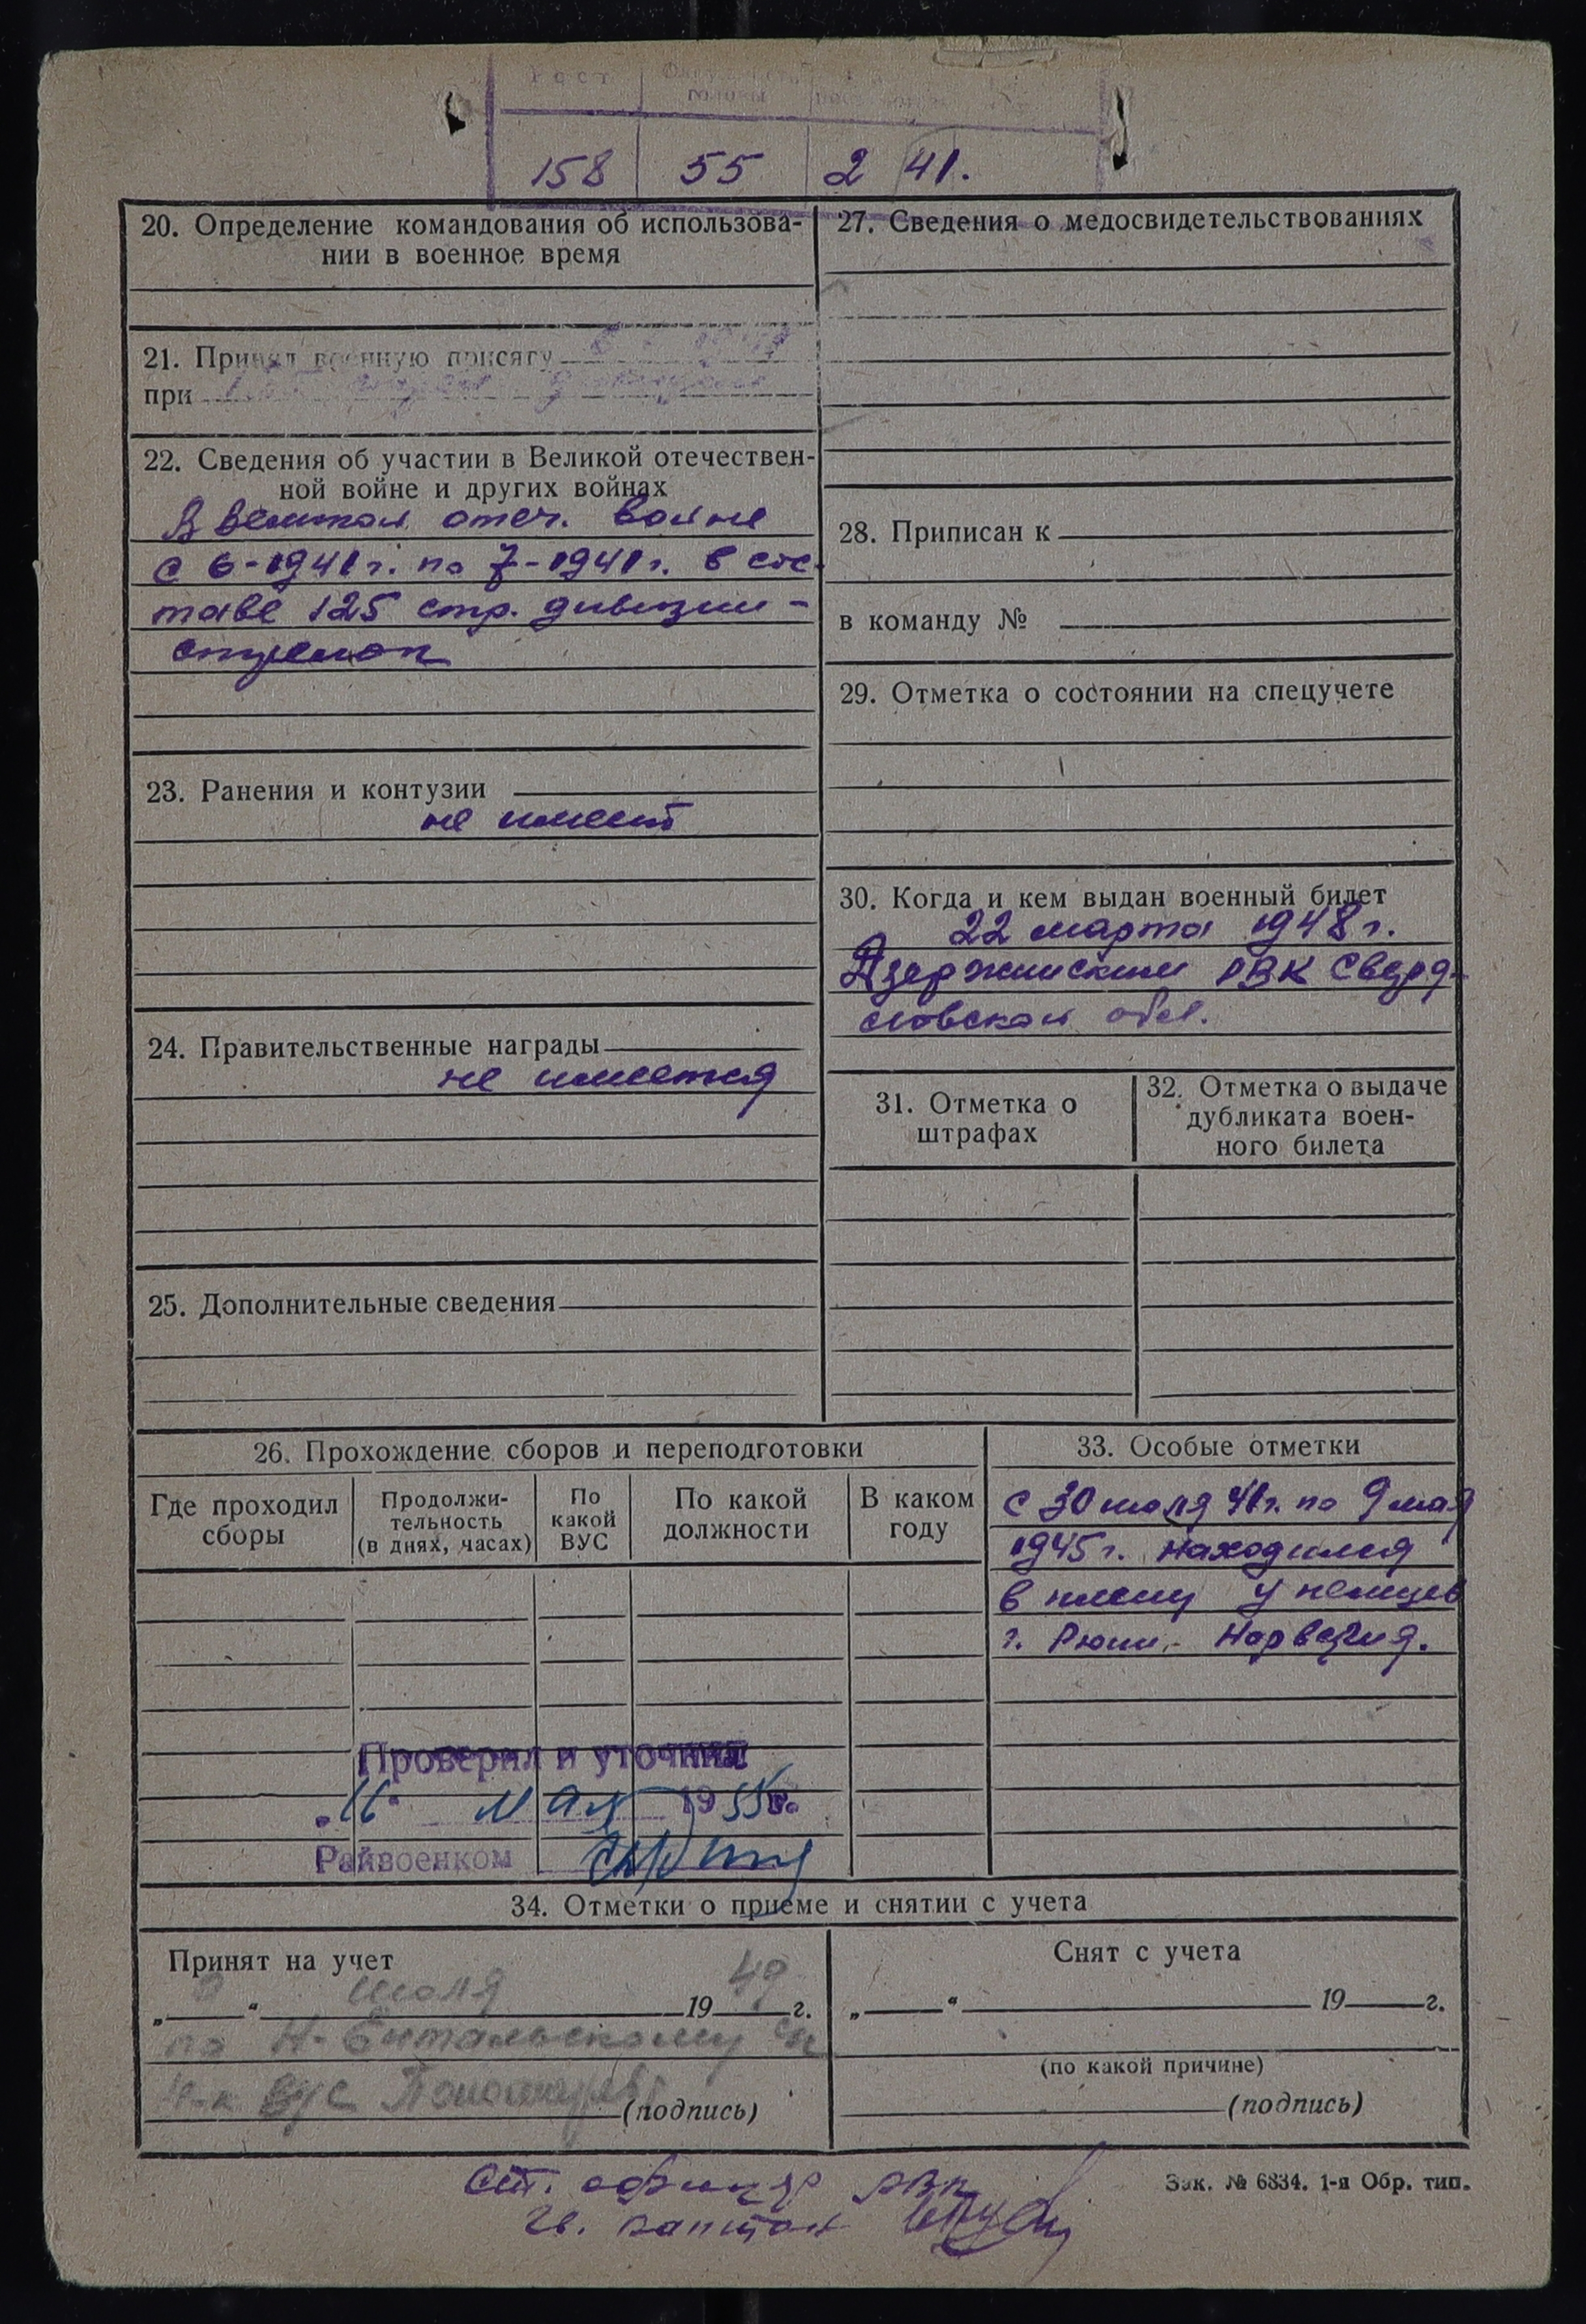 Рост
головы
158 55 2 41.
20. Определение командования об использова-
нии в военное время
21. Принял военную присягу
при
22. Сведения об участии в Великой отечествен-
ной войне и других войнах
В Великой отеч. войне
с 6-1941 г. по 7-1941 г. в сос-
таве 125 стр. дивизии -
стрелок
23. Ранения и контузии
не имеет
24. Правительственные награды
не имеется
25. Дополнительные сведения
27. Сведения о медосвидетельствованиях
28. Приписан к
в команду №
29. Отметка о состоянии на спецучете
30. Когда и кем выдан военный билет
22 марта 1948 г.
Дзержинским РВК Сверд-
ловской обл.
31. Отметка о
штрафах
32. Отметка о выдаче
дубликата воен-
ного билета
26. Прохождение сборов и переподготовки
Где проходил
сборы
Продолжи-
тельность
(в днях, часах)
По
какой
ВУС
По какой
должности
В каком
году
33. Особые отметки
с 30 июля 41 г. по 9 мая
1945 г. находился
в плену у немцев
г. Рюки, - Норвегия.
Проверил и уточнил
„16“ мая 1955 г.
Райвоенком
34. Отметки о приеме и снятии с учета
Принят на учет
„ “ июля 1949 г.
по Н-Ентальскому с/с
Н-к ВУС
(подпись)
Снят с учета
„ “ 19 г.
(по какой причине)
(подпись)
Ст. офицер РВК
Гв. капитан
Зак. № 6834. 1-я Обр. тип.